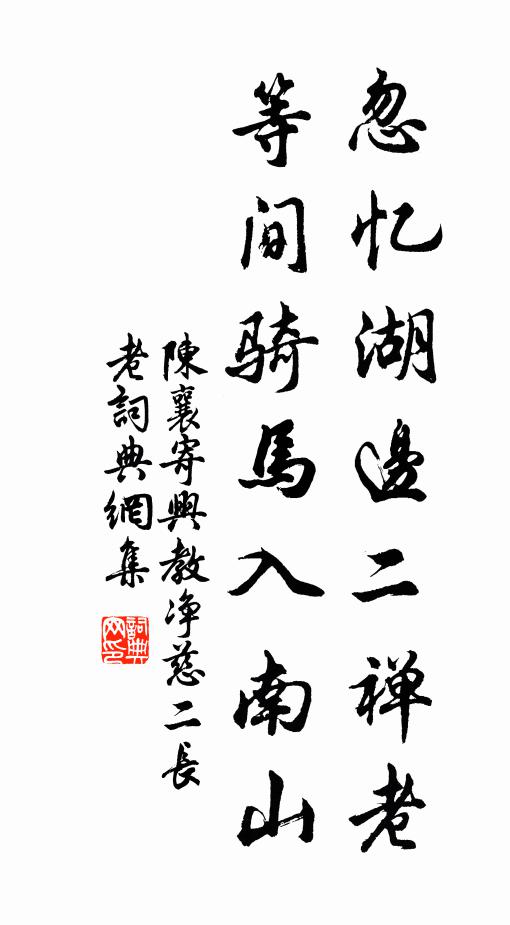 忽忆湖邊二禅老
等间骑馬入南山
陳襄寄興教净慈二長
老詞典網集
詞典网印